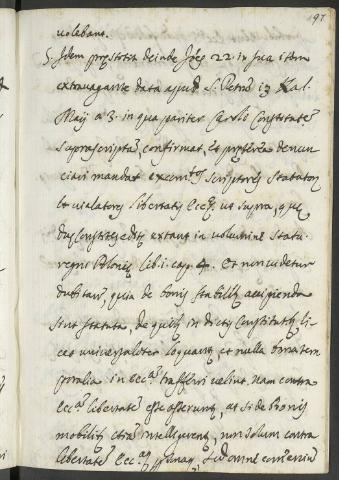 97
volebant.
5. Idem prestitit deinde Joes 22. in sua
extravagante data apud S. Petru 13 Kal.
Maij a. 3. in qua pariter Caroli Constitutₑ
suprascriptā confirmat, et preterea denun
ciari mandat excom̄tos scriptores statutor
et violatores libertatis Eccₑ, ut supra, que
duę Constitₑs editę extant in volumine statu.
regni Polonię lib. i. cap. 4. Et non videtur
dubitari, quin de bonis stabilib accipienda
sint statuta, de quib in dictis Constitutib, li-
cet universaliter loquant, et nulla bona tem
poralia in Eccam trasferri velint, nam contra
Eccae libertate esse asserunt, at si de bonis
mobilib etiā intelligerent, non solum contra
libertate Eccae, sed omne